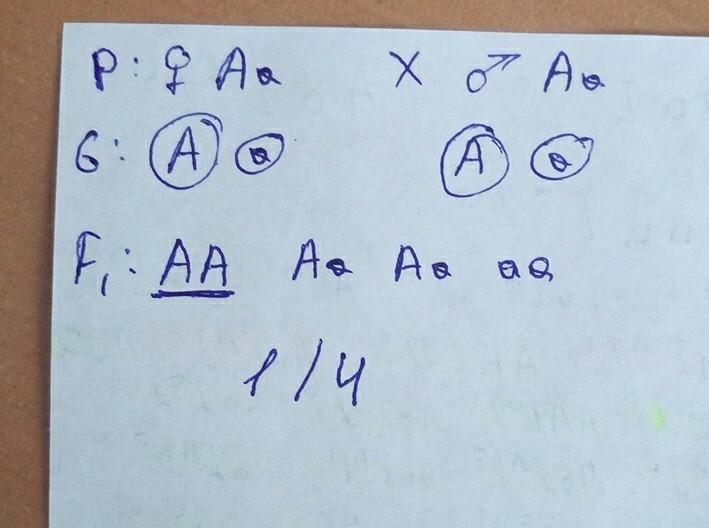 P: ♀ Aa X ♂ Aa
G: A a A a
F₁: AA Aa Aa aa
1/4